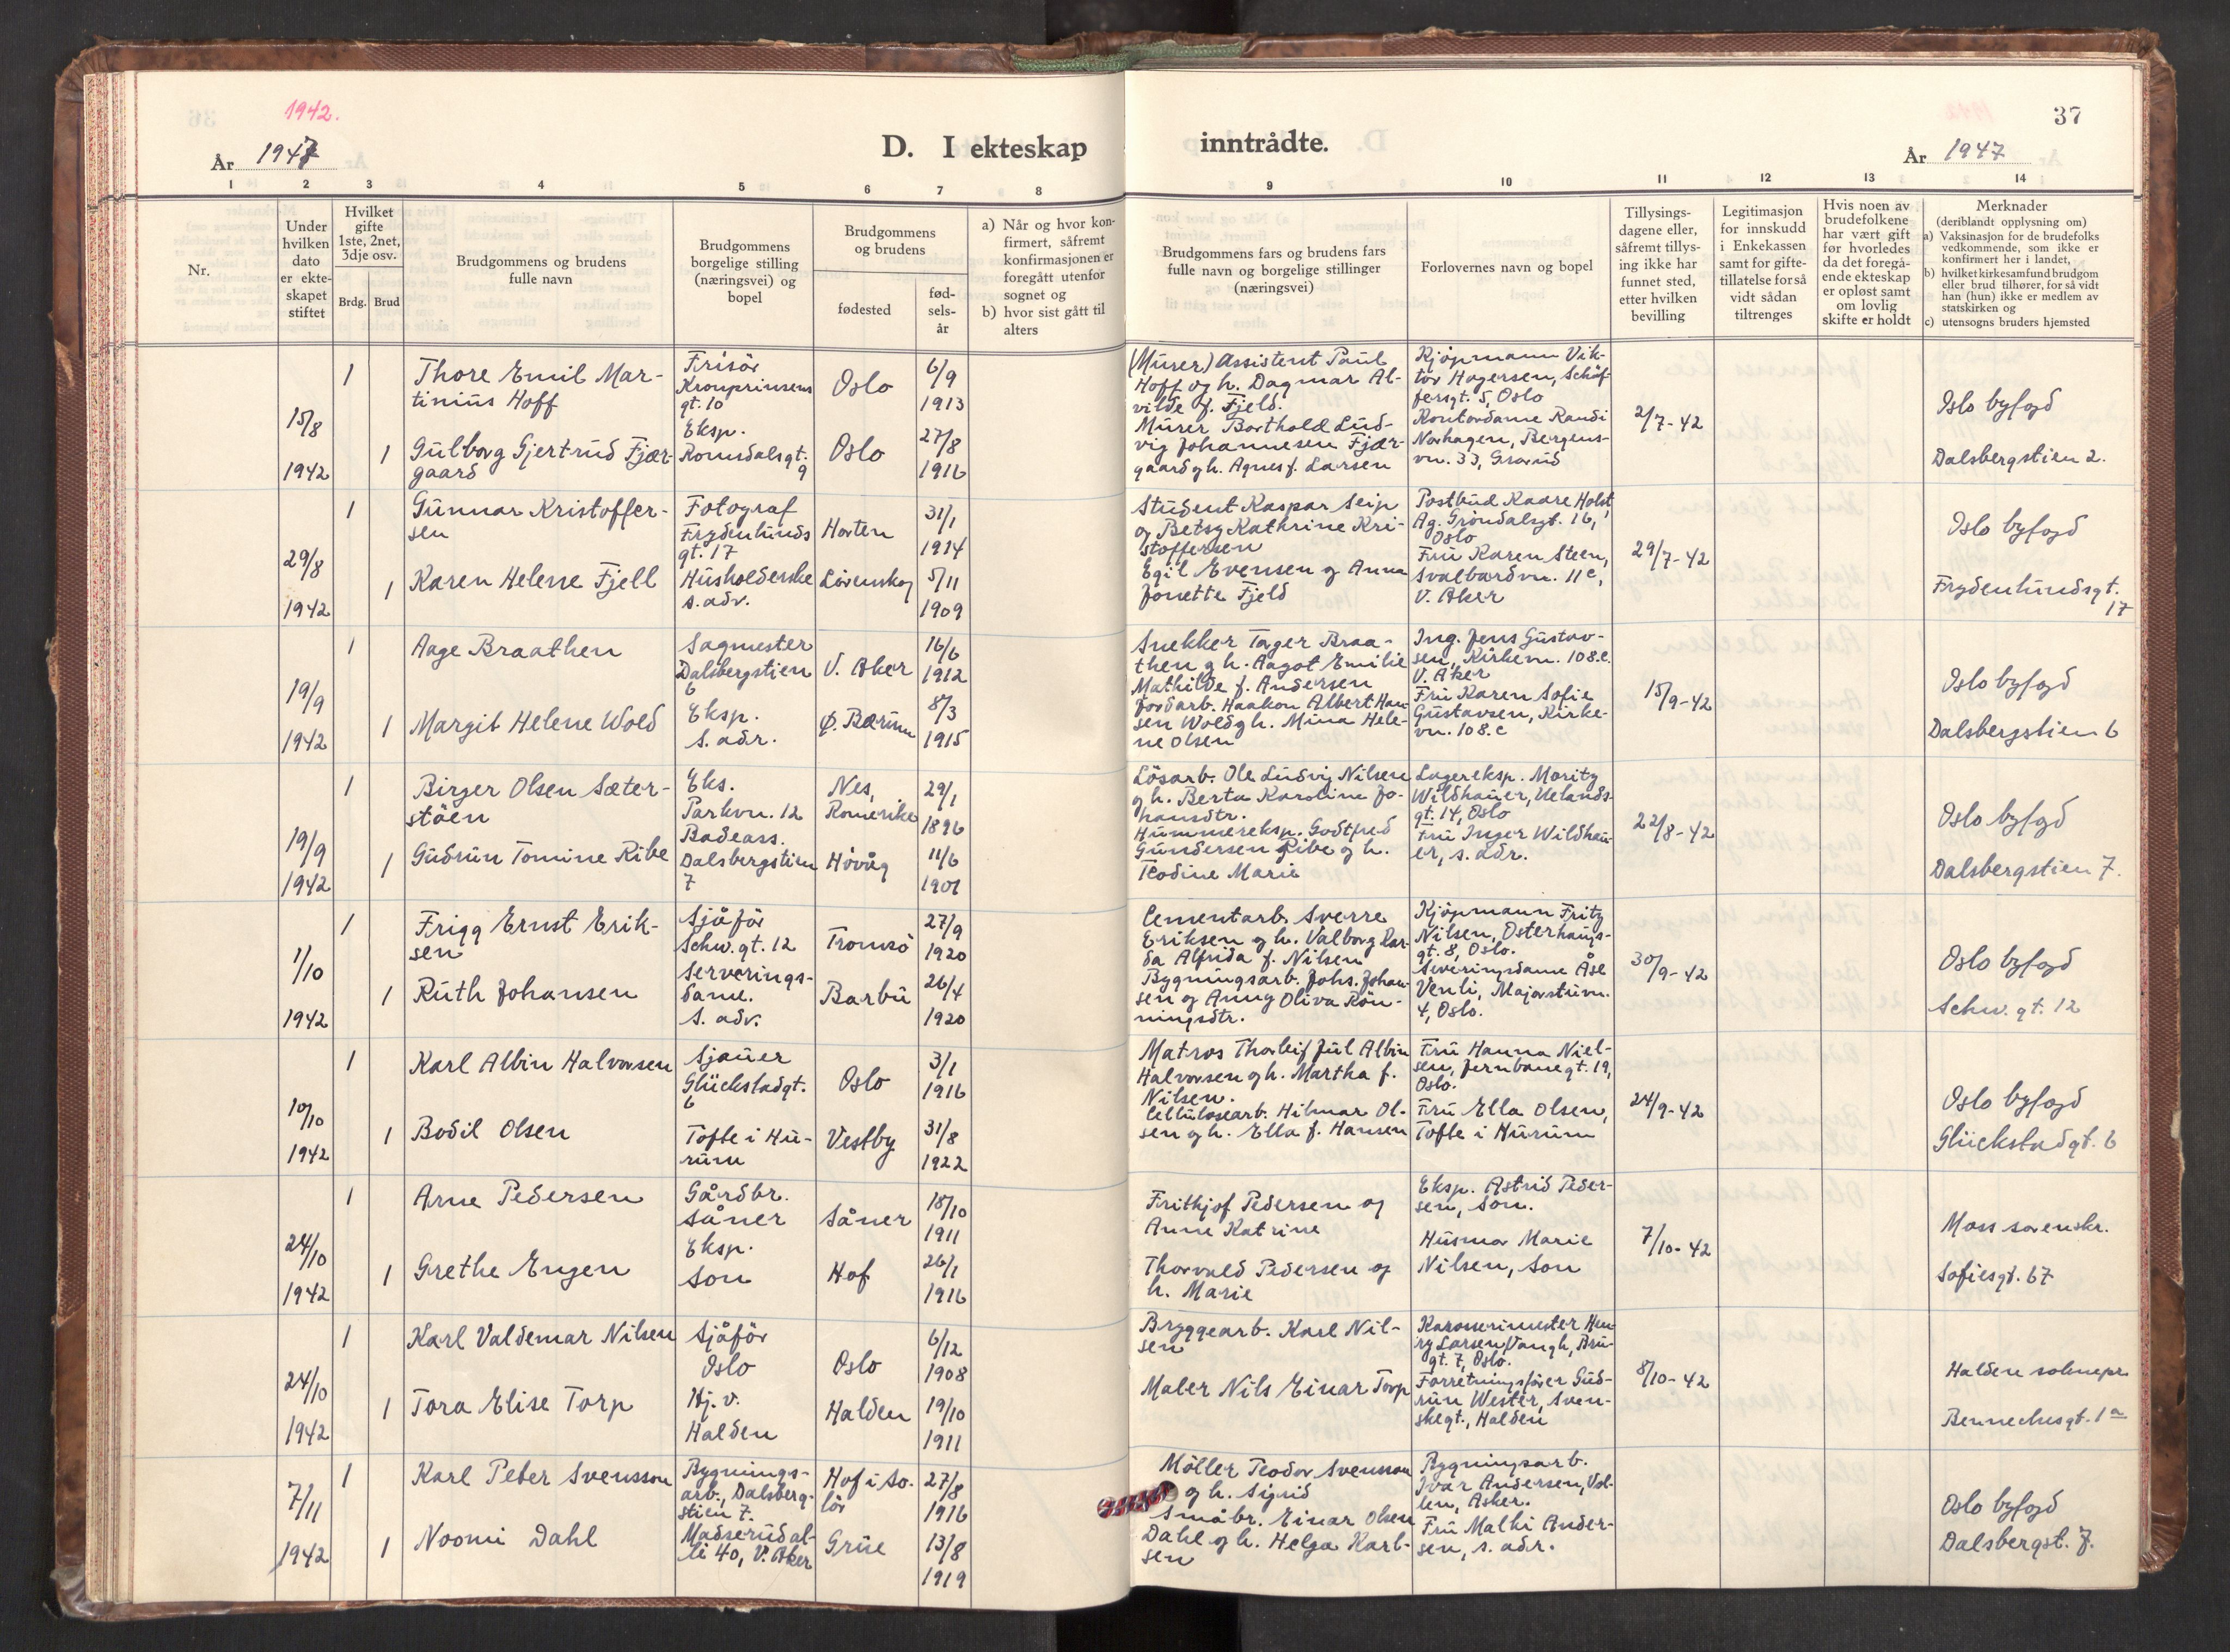 1942.
År 1947
D. I ekteskap
inntrådte.
37
År 1947
1 2 3 4 5 6 7 8 9 10 11 12 13 14
Nr.
Under
hvilken
dato
er ekte-
skapet
stiftet
Hvilket
gifte
1ste, 2net,
3dje osv.
Brdg. Brud
Brudgommens og brudens
fulle navn
Brudgommens
borgelige stilling
(næringsvei) og
bopel
Brudgommens
og brudens
fødested
fød-
sels-
år
a) Når og hvor kon-
firmert, såfremt
konfirmasjonen er
foregått utenfor
sognet og
b) hvor sist gått til
alters
Brudgommens fars og brudens fars
fulle navn og borgelige stillinger
(næringsvei)
Forlovernes navn og bopel
Tillysings-
dagene eller,
såfremt tillys-
ing ikke har
funnet sted,
etter hvilken
bevilling
Legitimasjon
for innskudd
i Enkekassen
samt for gifte-
tillatelse for så
vidt sådan
tiltrenges
Hvis noen av
brudefolkene
har vært gift
før hvorledes
da det foregå-
ende ekteskap
er opløst samt
om lovlig
skifte er holdt
Merknader
(deriblandt opplysning om)
a) Vaksinasjon for de brudefolks
vedkommende, som ikke er
konfirmert her i landet,
b) hvilket kirkesamfund brudgom
eller brud tilhører, for så vidt
han (hun) ikke er medlem av
statskirken og
c) utensogns bruders hjemsted
15/8
1942
1
1
Thore Emil Mar-
tinius Hoff
Gulborg Gjertrud Fjær-
gaard
Frisör
Kronprinsens
gt. 10
Eksp.
Romsdalsgt.
9
Oslo
Oslo
6/9
1913
27/8
1916
(Murer) Assistent Paul
Hoff og h. Dagmar Al-
vilde f. Fjeld.
Murer Barthold Lud-
vig Johannesen Fjær-
gaard og h. Agnes f. Larsen
Kjøpmann Vik-
tor Hagersen, Schøf-
fersgt. 5, Oslo
Kontordame Randi
Norhagen, Bergens-
vn. 33, Grorud
2/7-42
Oslo byfogd
Dalsbergstien 2.
29/8
1942
1
1
Gunnar Kristoffer-
sen
Karen Helene Fjell
Fotograf
Frydenlunds
gt. 17
Husholderske
s. adr.
Horten
Lörenskog
31/1
1914
5/11
1909
Student Kaspar Seip
og Betsy Kathrine Kri-
stoffersen
Egil Evensen og Anna
Jonette Fjeld
Postbud Kaare Holst,
Ag. Gröndalsgt. 16,
Oslo
Fru Karen Steen,
Svalbardvn. 11c,
V. Aker
29/7-42
Oslo byfogd
Frydenlundsgt.
17
19/9
1942
1
1
Aage Braathen
Margit Helene Wold
Sagmester
Dalsbergstien
6
Eksp.
s. adr.
V. Aker
Ø. Bærum
16/6
1912
8/3
1915
Snekker Torger Braa-
then og h. Aagot Emilie
Mathilde f. Andersen
Jordarb. Haakon Albert Han-
sen Wold og h. Mina Hele-
ne Olsen
Ing. Jens Gustav-
sen, Kirkevn. 108.c.
V. Aker
Fru Karen Sofie
Gustavsen, Kirke-
vn. 108.c
15/9-42
Oslo byfogd
Dalsbergstien 6
19/9
1942
1
1
Birger Olsen Sæter-
stöen
Gudrun Tomine Ribe
Eks.
Parkvn. 12
Badeass.
Dalsbergstien
7
Nes,
Romerike
Hövåg
29/1
1896
11/6
1901
Lösarb. Ole Ludvig Nilsen
og h. Berta Karoline Jo-
hansdtr.
Hummereksp. Godtfred
Gundersen Ribe og h.
Teodine Marie
Lagereksp. Moritz
Wildhauer, Uelands-
gt. 14, Oslo
Fru Inger Wildhau-
er, s. adr.
22/8-42
Oslo byfogd
Dalsbergstien 7.
1/10
1942
1
1
Frigg Ernst Erik-
sen
Ruth Johansen
Sjåför
Schw. gt. 12
Serverings-
dame.
s. adr.
Tromsö
Barbu
27/9
1920
26/4
1920
Cementarb. Sverre
Eriksen og h. Valborg Kar-
da Alfrida f. Nilsen
Bygningsarb. Johs. Johan-
sen og Anny Oliva Rön-
ningsdtr.
Kjøpmann Fritz
Nilsen, Osterhaugs-
gt. 8, Oslo.
Severingsdame Åse
Venli, Majorstuvn.
4, Oslo.
30/9-42
Oslo byfogd
Schw. gt. 12
10/10
1942
1
1
Karl Albin Halvorsen
Bodil Olsen
Sjauer
Glückstadgt.
6
Tofte i Hu-
rum
Oslo
Vestby
3/1
1916
31/8
1922
Matros Thorleif Jul Albin
Halvorsen og h. Martha f.
Nilsen.
Cellulosearb. Hilmar Ol-
sen og h. Ella f. Hansen
Fru Hanna Niel-
sen, Jernbanegt. 19,
Oslo.
Fru Ella Olsen,
Tofte i Hurum
24/9-42
Oslo byfogd
Glückstadgt. 6
24/10
1942
1
1
Arne Pedersen
Grethe Engen
Gårdbr.
Såner
Eksp.
Son
Såner
Hof
18/10
1911
26/1
1916
Frithjof Pedersen og
Anne Katrine
Thorvald Pedersen og
h. Marie
Eksp. Astrid Peder-
sen, Son.
Husmor Marie
Nilsen, Son
7/10-42
Moss sorenskr.
Sofiesgt. 67
24/10
1942
1
1
Karl Valdemar Nilsen
Tora Elise Torp
Sjåför
Oslo
Hj. v.
Halden
Oslo
Halden
6/12
1908
19/10
1911
Bryggearb. Karl Nil-
sen
Maler Nils Einar Torp
Karosserimester Hen-
ry Larsen, Vangh, Bru-
gt. 7, Oslo.
Forretningsfører Gud-
run Wester, Sven-
skegt., Halden
8/10-42
Halden soknepr.
Bennechesgt. 1a
7/11
1942
1
1
Karl Peter Svensson
Noomi Dahl
Bygnings-
arb., Dalsberg-
stien 7.
Madserudal-
le 40, V. Aker
Hof i So-
lör
Grue
27/8
1916
13/8
1919
Möller Teodor Svensson
og h. Sigrid
Småbr. Einar Olsen
Dahl og h. Helga Karl-
sen
Bygningsarb.
Ivar Andersen, Vol-
len, Asker.
Fru Malhi Ander-
sen, s. adr.
Oslo byfogd
Dalsbergst. 7.